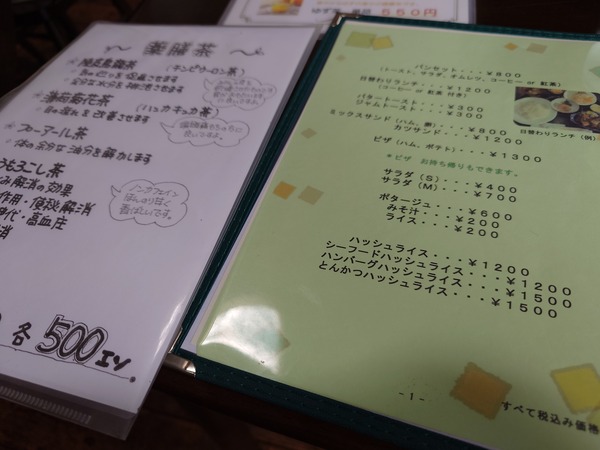 ５５０円
薬膳茶
(キンピサーロン茶)
薄荷菊花茶
(ハッカキッカ茶)
目の疲れを改善させます
プーアール茶
体の余分な油分を溶かします
うもろこし茶
み解消の効果
作用・便秘解消
・高血圧
消
ノンカフェイン
ほんのり甘く
香ばしいです。
各500エン。
パンセット・・・￥８００
(トースト、サラダ、オムレツ、コーヒー or 紅茶)
日替わりランチ・・￥１２００
(コーヒー or 紅茶 付き)
バタートースト・・・￥３００
ジャムトースト・・・￥３００
ミックスサンド(ハム、卵)・・￥８００
カツサンド・・・￥１２００
ピザ(ハム、ポテト)・・￥１３００
＊ピザ お持ち帰りもできます。
日替わりランチ(例)
サラダ(Ｓ)・・・￥４００
サラダ(Ｍ)・・・￥７００
ポタージュ・・・￥６００
みそ汁・・・￥２００
ライス・・・￥２００
ハッシュライス・・・￥１２００
シーフードハッシュライス・・・￥１２００
ハンバーグハッシュライス・・・￥１５００
とんかつハッシュライス・・・￥１５００
-１-
すべて税込み価格